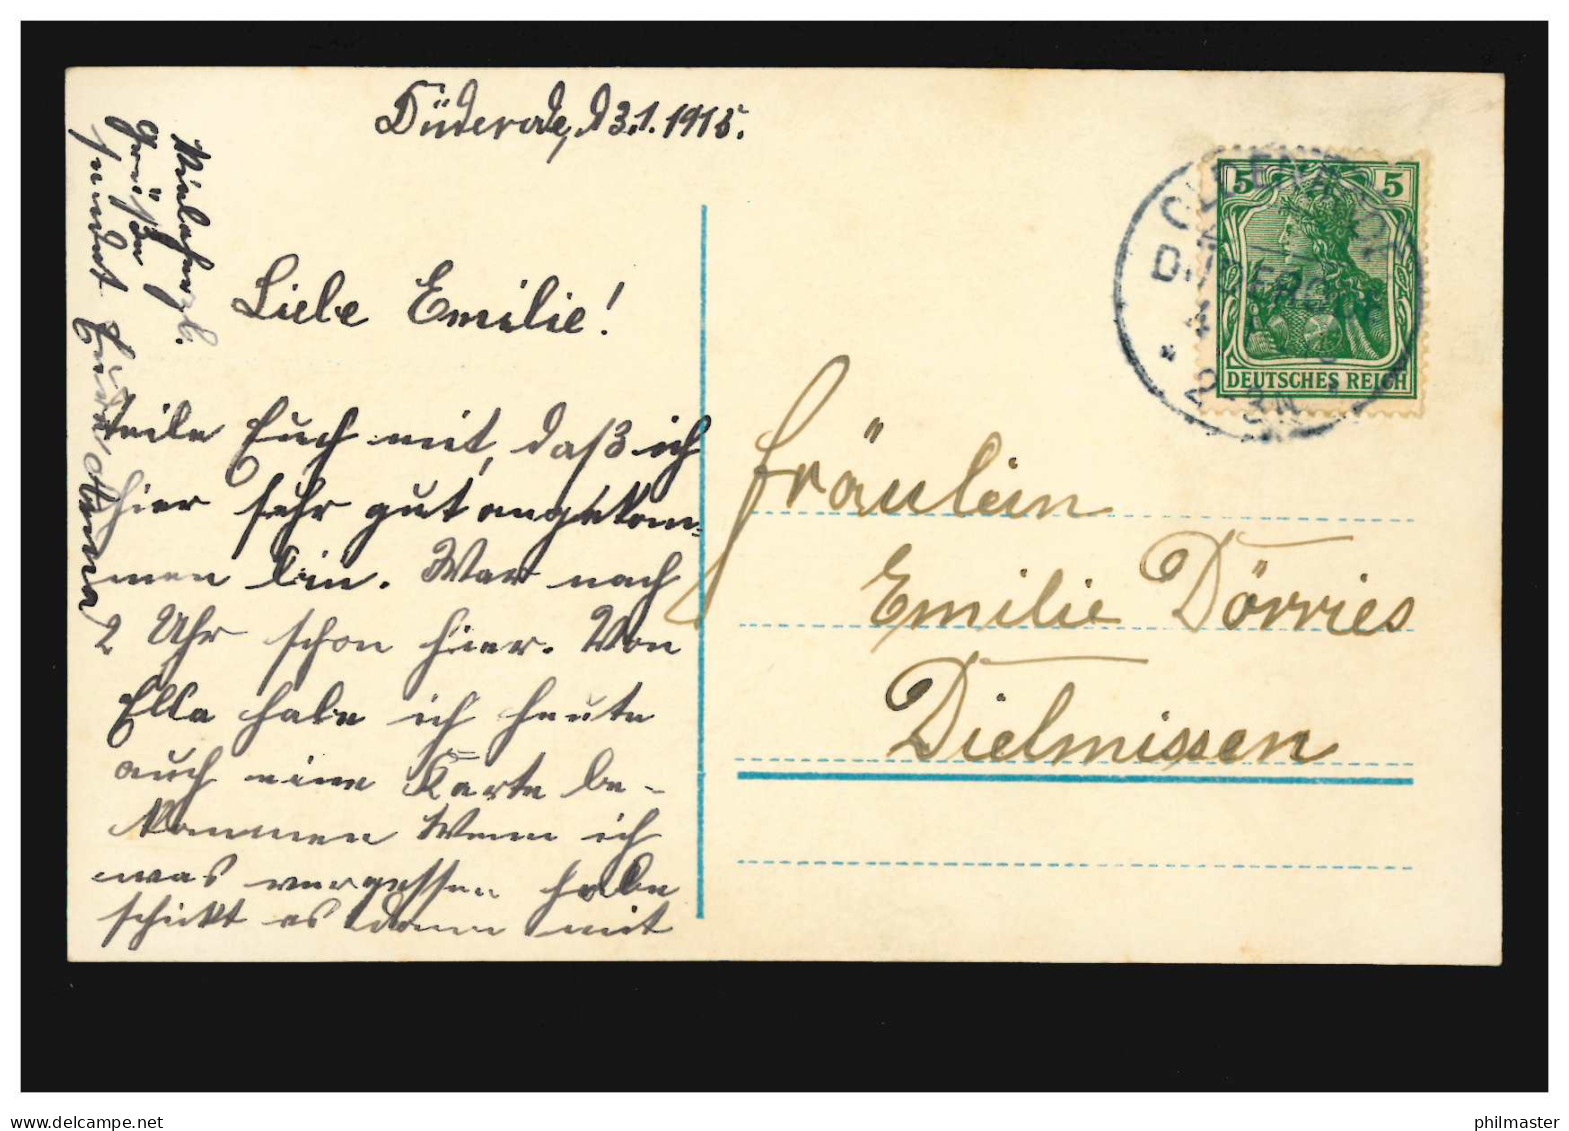 Düderode, d 3.1.1915.
Liebe Emilie!
teile Euch mit, daß ich
hier sehr gut angekom=
men bin. War nach
2 Uhr schon hier. Von
Ella habe ich heute
auch eine Karte be-
kommen Wenn ich
was vergessen habe
schickt es dann mit
Viele herzl.
Grüße
sendet Eure Anna
OLDENRODE
DÜDERODE
4
* 2-3N
5 5
DEUTSCHES REICH
Fräulein
Emilie Dörries
Dielmissen
delcampe.net
philmaster